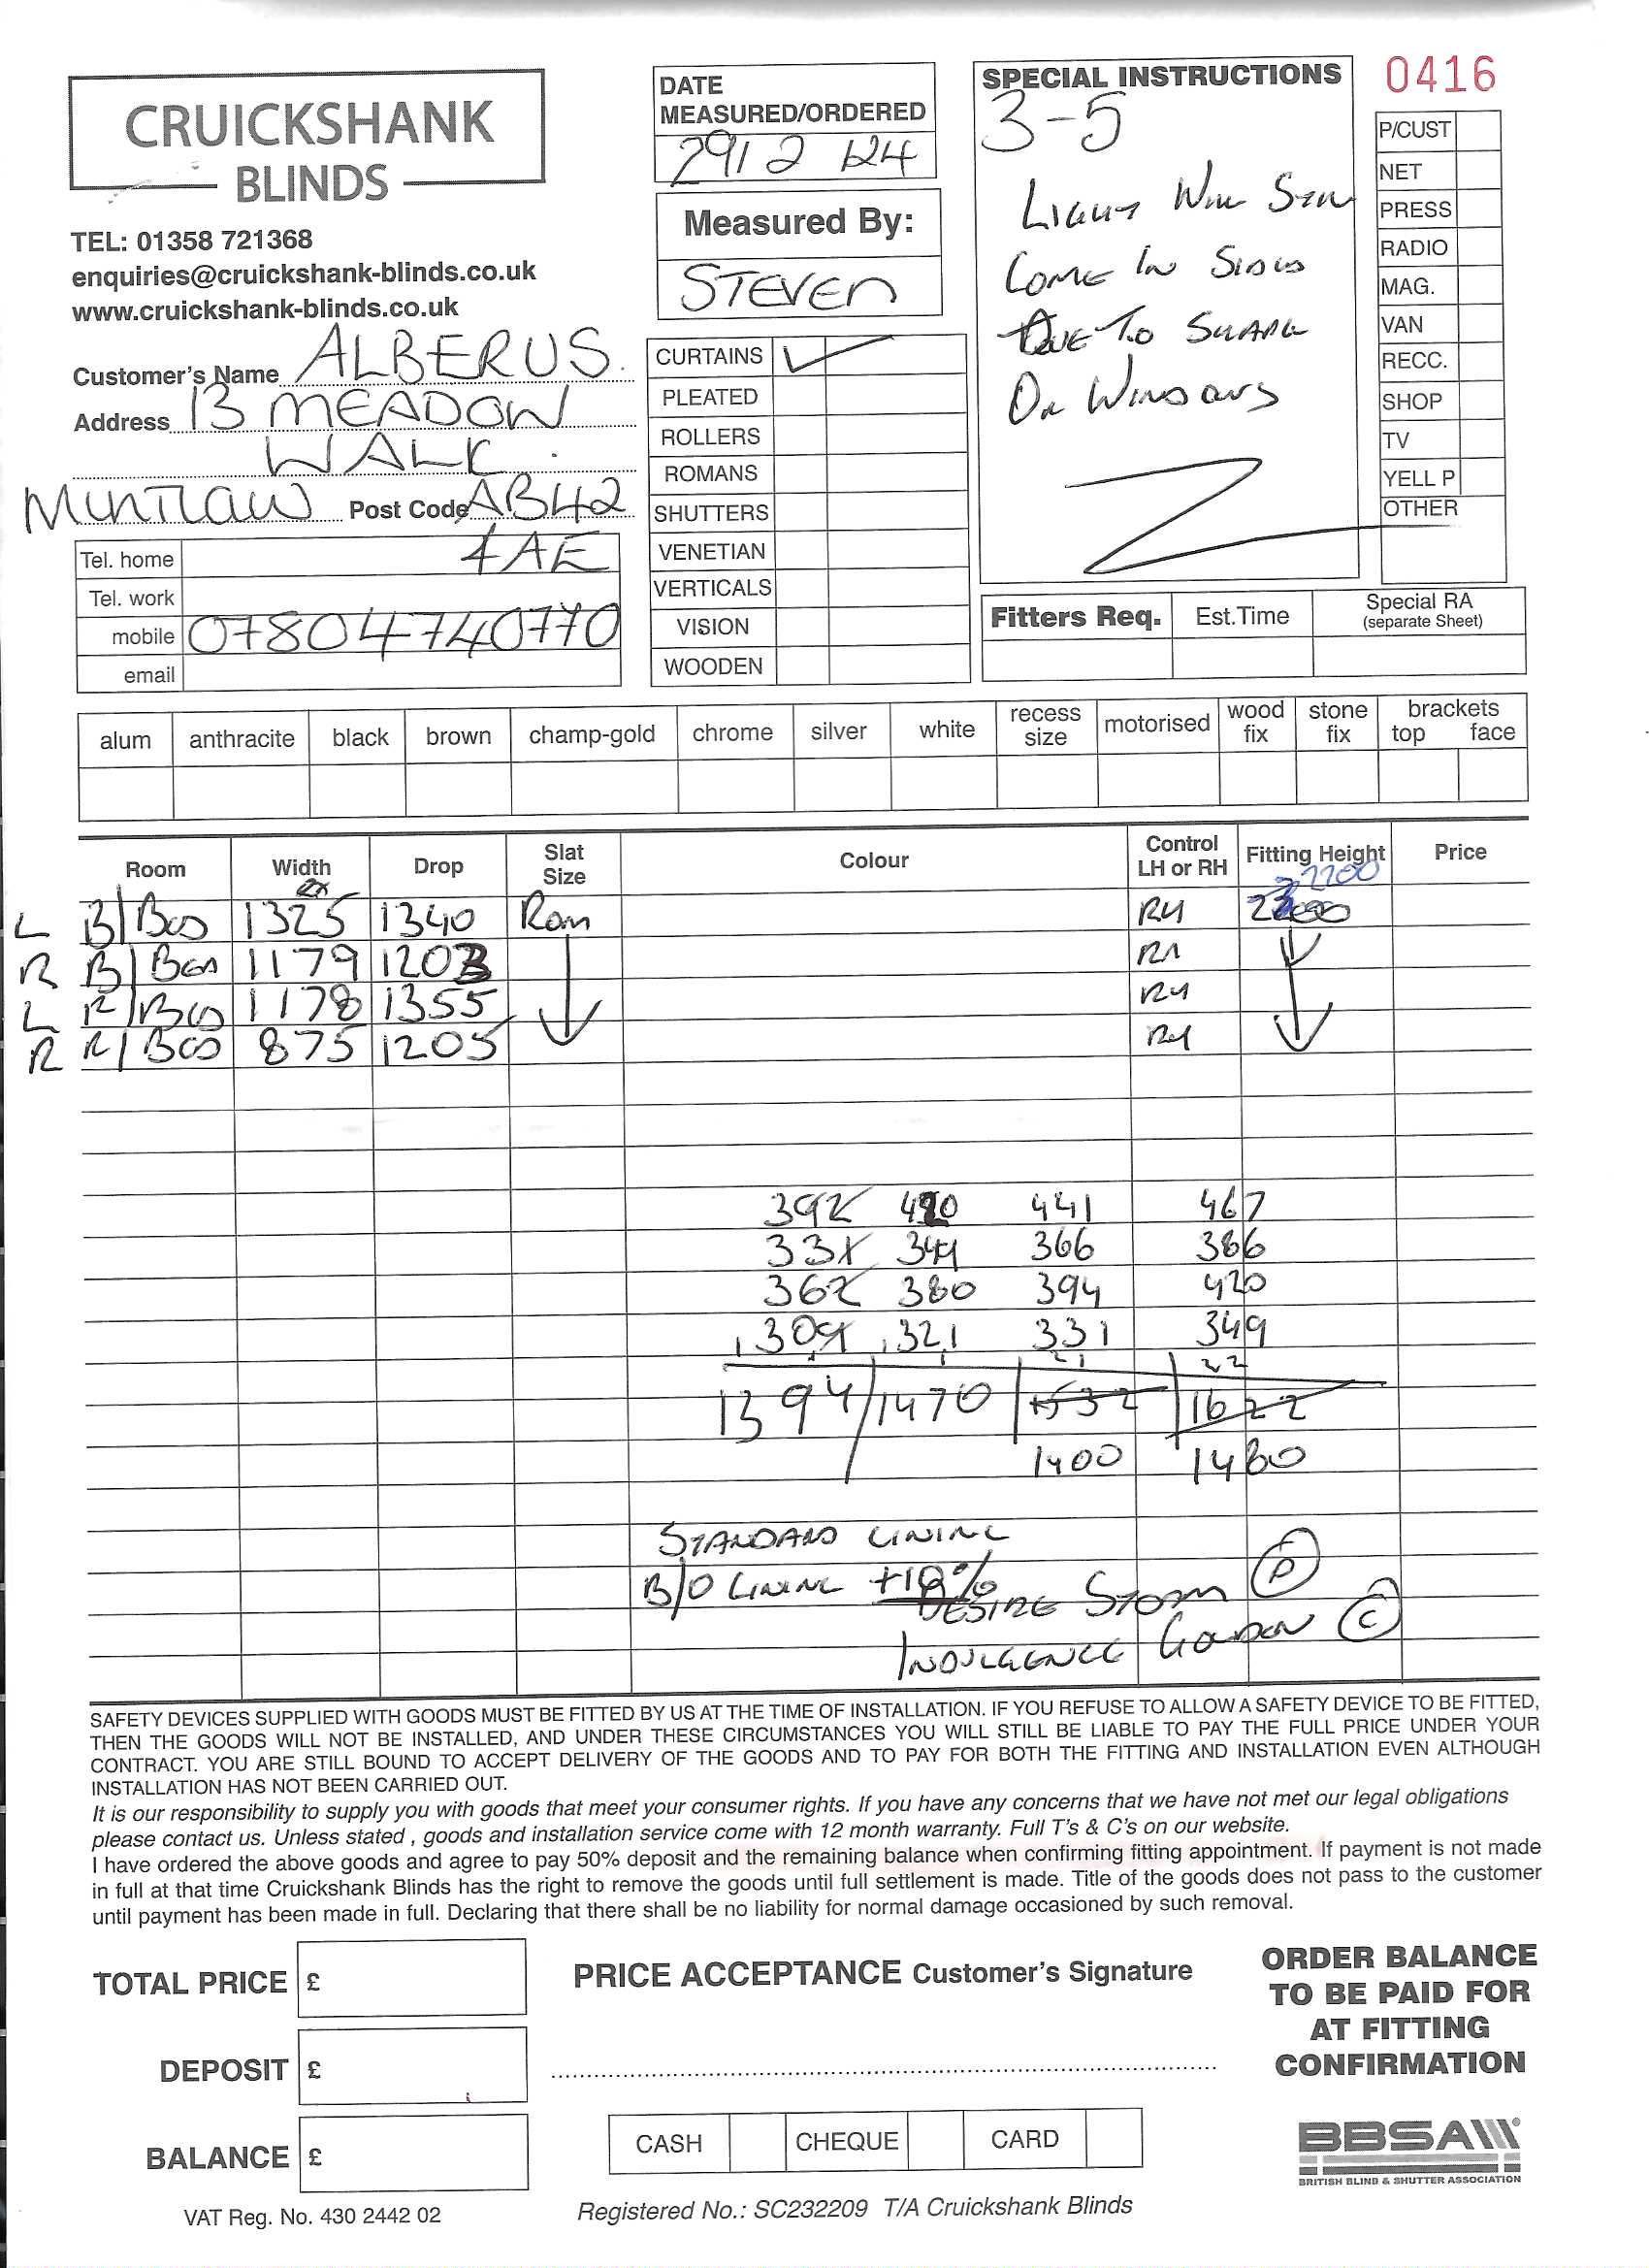 CRUICKSHANK
BLINDS
TEL: 01358 721368
enquiries@cruickshank-blinds.co.uk
www.cruickshank-blinds.co.uk
Customer's Name ALBERUS.
Address 13 MEADOW
WALK.
MINTLAW Post Code AB42
4AE
Tel. home
Tel. work
mobile 07804740770
email
DATE
MEASURED/ORDERED
29/2/24
Measured By:
STEVEN
CURTAINS ✓
PLEATED
ROLLERS
ROMANS
SHUTTERS
VENETIAN
VERTICALS
VISION
WOODEN
SPECIAL INSTRUCTIONS
3-5
LIGHT WILL STILL
COME IN SIDES
DUE TO SHAPE
OF WINDOWS
0416
P/CUST
NET
PRESS
RADIO
MAG.
VAN
RECC.
SHOP
TV
YELL P
OTHER
Fitters Req. Est.Time Special RA
(separate Sheet)
alum anthracite black brown champ-gold chrome silver white recess size motorised wood fix stone fix brackets top face
Room Width Drop Slat Size Colour Control LH or RH Fitting Height Price
2200
L B/BED 1325 1340 Rom RH
R B/BED 1179 1203 RH
L R/BED 1178 1355 RH
R R/BED 875 1205 RH
392 420 441 467
331 349 366 386
362 380 394 420
309 321 331 349
1394 1470 1532 1622
1400 1480
STANDARD LINING
B/O LINING +10%
DESIRE STORM (P)
INDULGENCE (C)
SAFETY DEVICES SUPPLIED WITH GOODS MUST BE FITTED BY US AT THE TIME OF INSTALLATION. IF YOU REFUSE TO ALLOW A SAFETY DEVICE TO BE FITTED,
THEN THE GOODS WILL NOT BE INSTALLED, AND UNDER THESE CIRCUMSTANCES YOU WILL STILL BE LIABLE TO PAY THE FULL PRICE UNDER YOUR
CONTRACT. YOU ARE STILL BOUND TO ACCEPT DELIVERY OF THE GOODS AND TO PAY FOR BOTH THE FITTING AND INSTALLATION EVEN ALTHOUGH
INSTALLATION HAS NOT BEEN CARRIED OUT.
It is our responsibility to supply you with goods that meet your consumer rights. If you have any concerns that we have not met our legal obligations
please contact us. Unless stated , goods and installation service come with 12 month warranty. Full T's & C's on our website.
I have ordered the above goods and agree to pay 50% deposit and the remaining balance when confirming fitting appointment. If payment is not made
in full at that time Cruickshank Blinds has the right to remove the goods until full settlement is made. Title of the goods does not pass to the customer
until payment has been made in full. Declaring that there shall be no liability for normal damage occasioned by such removal.
TOTAL PRICE £
DEPOSIT £
BALANCE £
VAT Reg. No. 430 2442 02
PRICE ACCEPTANCE Customer's Signature
CASH CHEQUE CARD
Registered No.: SC232209 T/A Cruickshank Blinds
ORDER BALANCE
TO BE PAID FOR
AT FITTING
CONFIRMATION
BBSA
BRITISH BLIND & SHUTTER ASSOCIATION